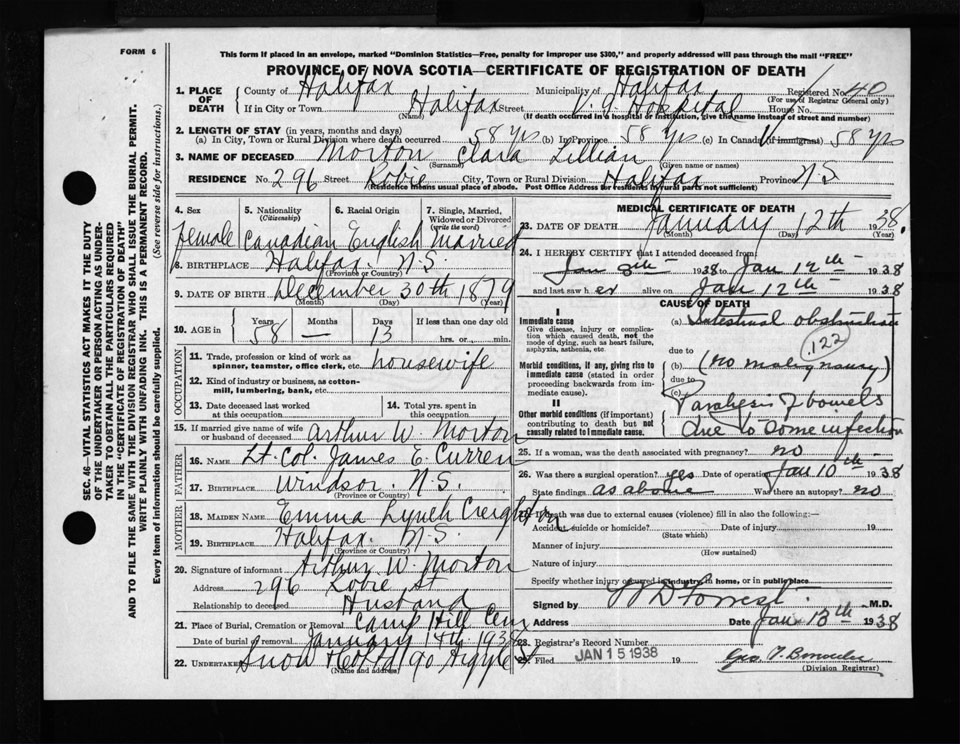 FORM 6
This form if placed in an envelope, marked "Dominion Statistics—Free, penalty for improper use $300," and properly addressed will pass through the mail "FREE"
PROVINCE OF NOVA SCOTIA—CERTIFICATE OF REGISTRATION OF DEATH
1. PLACE OF DEATH County of Halifax Municipality of Halifax Registered No. 40
(For use of Registrar General only)
If in City or Town Halifax Street V. G. Hospital House No.
(Name) (If death occurred in a hospital or institution, give the name instead of street and number)
2. LENGTH OF STAY (in years, months and days)
(a) In City, Town or Rural Division where death occurred 58 yrs (b) In Province 58 yrs (c) In Canada (if immigrant) 58 yrs
3. NAME OF DECEASED Morton Clara Lillian
(Surname) (Given name or names)
RESIDENCE No. 296 Street Robie City, Town or Rural Division Halifax Province N.S
(Residence means usual place of abode. Post Office Address for residents in rural parts not sufficient)
4. Sex 5. Nationality (Citizenship) 6. Racial Origin 7. Single, Married, Widowed or Divorced (write the word)
female Canadian English Married
8. BIRTHPLACE Halifax N.S.
(Province or Country)
9. DATE OF BIRTH December 30th 1879
(Month) (Day) (Year)
10. AGE in Years Months Days If less than one day old
58 — 13 hrs. or min.
OCCUPATION
11. Trade, profession or kind of work as spinner, teamster, office clerk, etc. housewife
12. Kind of industry or business, as cotton-mill, lumbering, bank, etc.
13. Date deceased last worked at this occupation 14. Total yrs. spent in this occupation
15. If married give name of wife or husband of deceased Arthur W. Morton
FATHER
16. Name Lt. Col. James E. Curren
17. Birthplace Windsor. N.S.
(Province or Country)
MOTHER
18. Maiden Name Emma Lynch Creighton
19. Birthplace Halifax. N.S.
(Province or Country)
20. Signature of informant Arthur W. Morton
Address 296 Robie St
Relationship to deceased Husband
21. Place of Burial, Cremation or Removal Camp Hill Cem
Date of burial or removal January 14th 1938
22. Undertaker Snow & Co Ltd 90 Argyle St
(Name and address)
MEDICAL CERTIFICATE OF DEATH
23. DATE OF DEATH January 12th 1938.
(Month) (Day) (Year)
24. I HEREBY CERTIFY that I attended deceased from
Jan 1938 to Jan 12th 1938
and last saw her alive on Jan 12th 1938
CAUSE OF DEATH
I
Immediate cause
Give disease, injury or complication which caused death, not the mode of dying, such as heart failure, asphyxia, asthenia, etc.
(a) Intestinal obstruction
122
due to
Morbid conditions, if any, giving rise to immediate cause (stated in order proceeding backwards from immediate cause).
(b) (no malignancy)
due to
(c) Paralysis of bowels
II
Other morbid conditions (if important) contributing to death but not causally related to immediate cause.
due to some infection
25. If a woman, was the death associated with pregnancy? no
26. Was there a surgical operation? yes Date of operation Jan 10th 1938
State findings as above Was there an autopsy? no
27. If death was due to external causes (violence) fill in also the following:—
Accident, suicide or homicide? Date of injury 19
(State which)
Manner of injury
(How sustained)
Nature of injury
Specify whether injury occurred in industry, in home, or in public place
Signed by W D Forrest M.D.
Address Date Jan 13th 1938
28. Registrar's Record Number
Filed JAN 15 1938 19
(Division Registrar)
SEC. 46—VITAL STATISTICS ACT MAKES IT THE DUTY OF THE UNDERTAKER OR PERSON ACTING AS UNDERTAKER TO OBTAIN ALL THE PARTICULARS REQUIRED IN THE "CERTIFICATE OF REGISTRATION OF DEATH"
AND TO FILE THE SAME WITH THE DIVISION REGISTRAR WHO SHALL ISSUE THE BURIAL PERMIT.
WRITE PLAINLY WITH UNFADING INK. THIS IS A PERMANENT RECORD.
Every item of information should be carefully supplied. (See reverse side for instructions.)